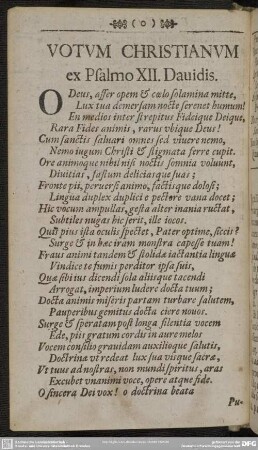 ( o )
VOTVM CHRISTIANVM
ex Psalmo XII. Dauidis.
O Deus, affer opem & cœlo solamina mitte,
Lux tua demersam nocte serenet humum!
En medios inter strepitus Fideique Deique,
Rara Fides animis, rarus vbique Deus!
Cum sanctis saluari omnes sed viuere nemo,
Nemo iugum Christi & stigmata ferre cupit.
Ore animoque nihil nisi noctis somnia voluunt,
Diuitias, fastum deliciasque suas;
Fronte pii, peruersi animo, factisque dolosi;
Lingua duplex duplici e pectore vana docet;
Hic vocum ampullas, gestit alter inania ructat,
Subtiles nugas hic serit, ille iocos.
Quid pius ista oculis spectet, Pater optime, siccis?
Surge & in hæc iram monstra capesse tuam!
Fraus animi tandem & stolidæ iactantia linguæ
Vindice te fumis porditor ipsa suis,
Quæ sibi ius dicendi sola aliisque tacendi
Arrogat, imperium ludere docta tuum;
Docta animis miseris partam turbare salutem,
Pauperibus gemitus docta ciere nouos.
Surge & speratam post longa silentia vocem
Ede, piis gratum cordis in aure melos
Vocem consilio grauidam auxilioque salutis,
Doctrinæ vt redeat lux sua viisque sacræ,
Vt tuus ad nostras, non mundi spiritus, aras
Excubet vnanimi voce, opere atque fide.
O sincera Dei vox! o doctrina beata
Pu-
DFG